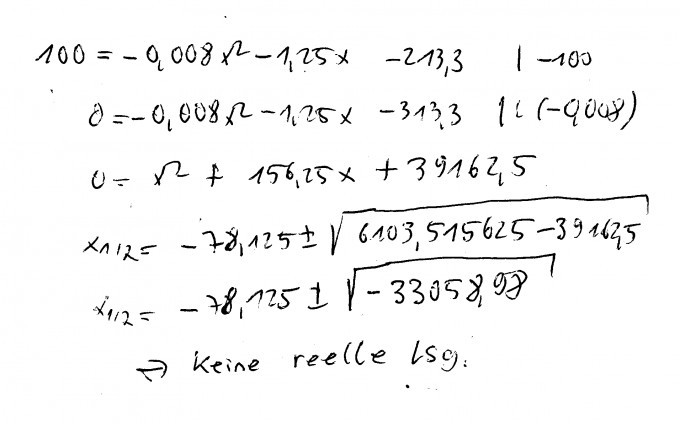 100 = -0,008x² -1,25x -213,3 | -100
0 = -0,008x² -1,25x -313,3 | : (-0,008)
0 = x² + 156,25x + 39162,5
x1/2 = -78,125 ± √6103,515625-39162,5
x1/2 = -78,125 ± √-33058,98
→ Keine reelle Lsg.